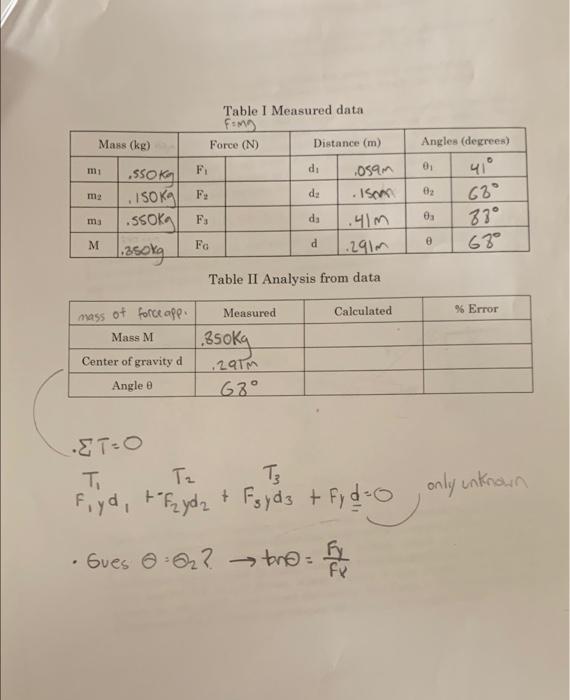 Table I Measured data
F=mg
Mass (kg) Force (N) Distance (m) Angles (degrees)
m₁ .550kg F₁ d₁ .059m θ₁ 41°
m₂ .150kg F₂ d₂ .15m θ₂ 68°
m₃ .550kg F₃ d₃ .41m θ₃ 33°
M .350kg F_G d .291m θ 68°
Table II Analysis from data
mass of force app. Measured Calculated % Error
Mass M .850kg
Center of gravity d .291m
Angle θ 68°
·ΣT=0
T₁ T₂ T₃
F₁yd₁ + -F₂yd₂ + F₃yd₃ + Fyd=0 only unknown
· Gues θ=θ₂? → tanθ = Fy/Fx